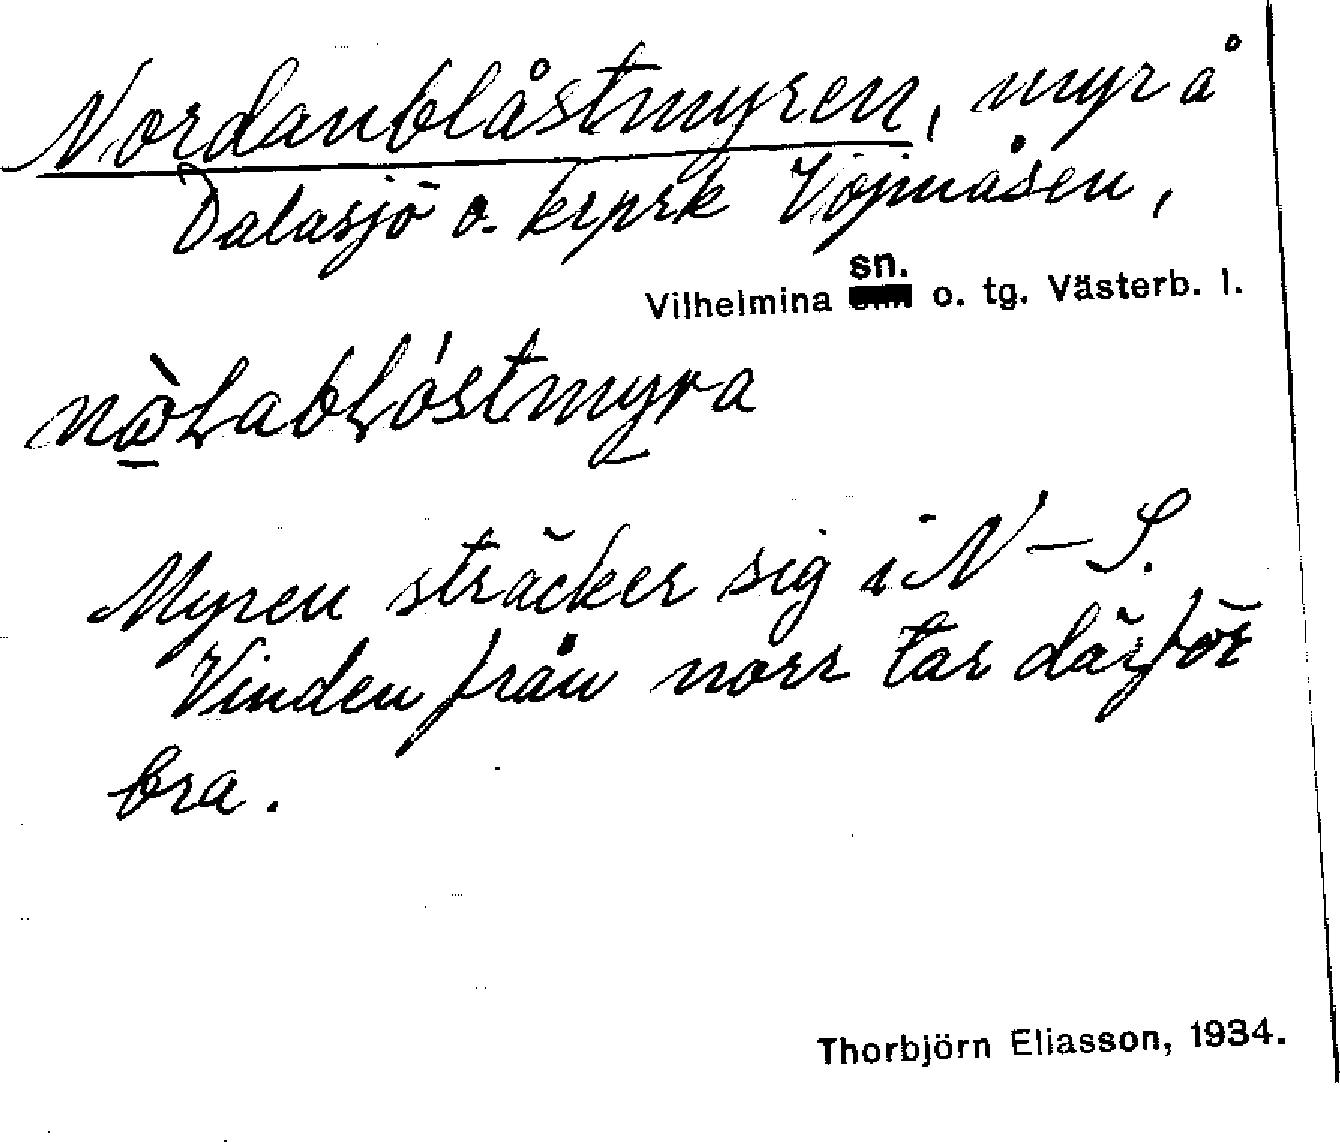 Nordanblåstmyren, myr å
Dalasjö o. krprk Vöjmåsen,
sn.
Vilhelmina o. tg. Västerb. l.
Myren sträcker sig i N – S.
Vinden från norr tar därför
bra.
Thorbjörn Eliasson, 1934.